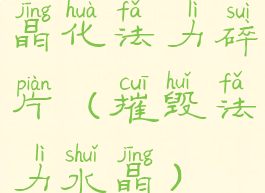 jīng huà fǎ lì suì
晶化法力碎
piàn cuī huǐ fǎ
片（摧毁法
lì shuǐ jīng
力水晶）